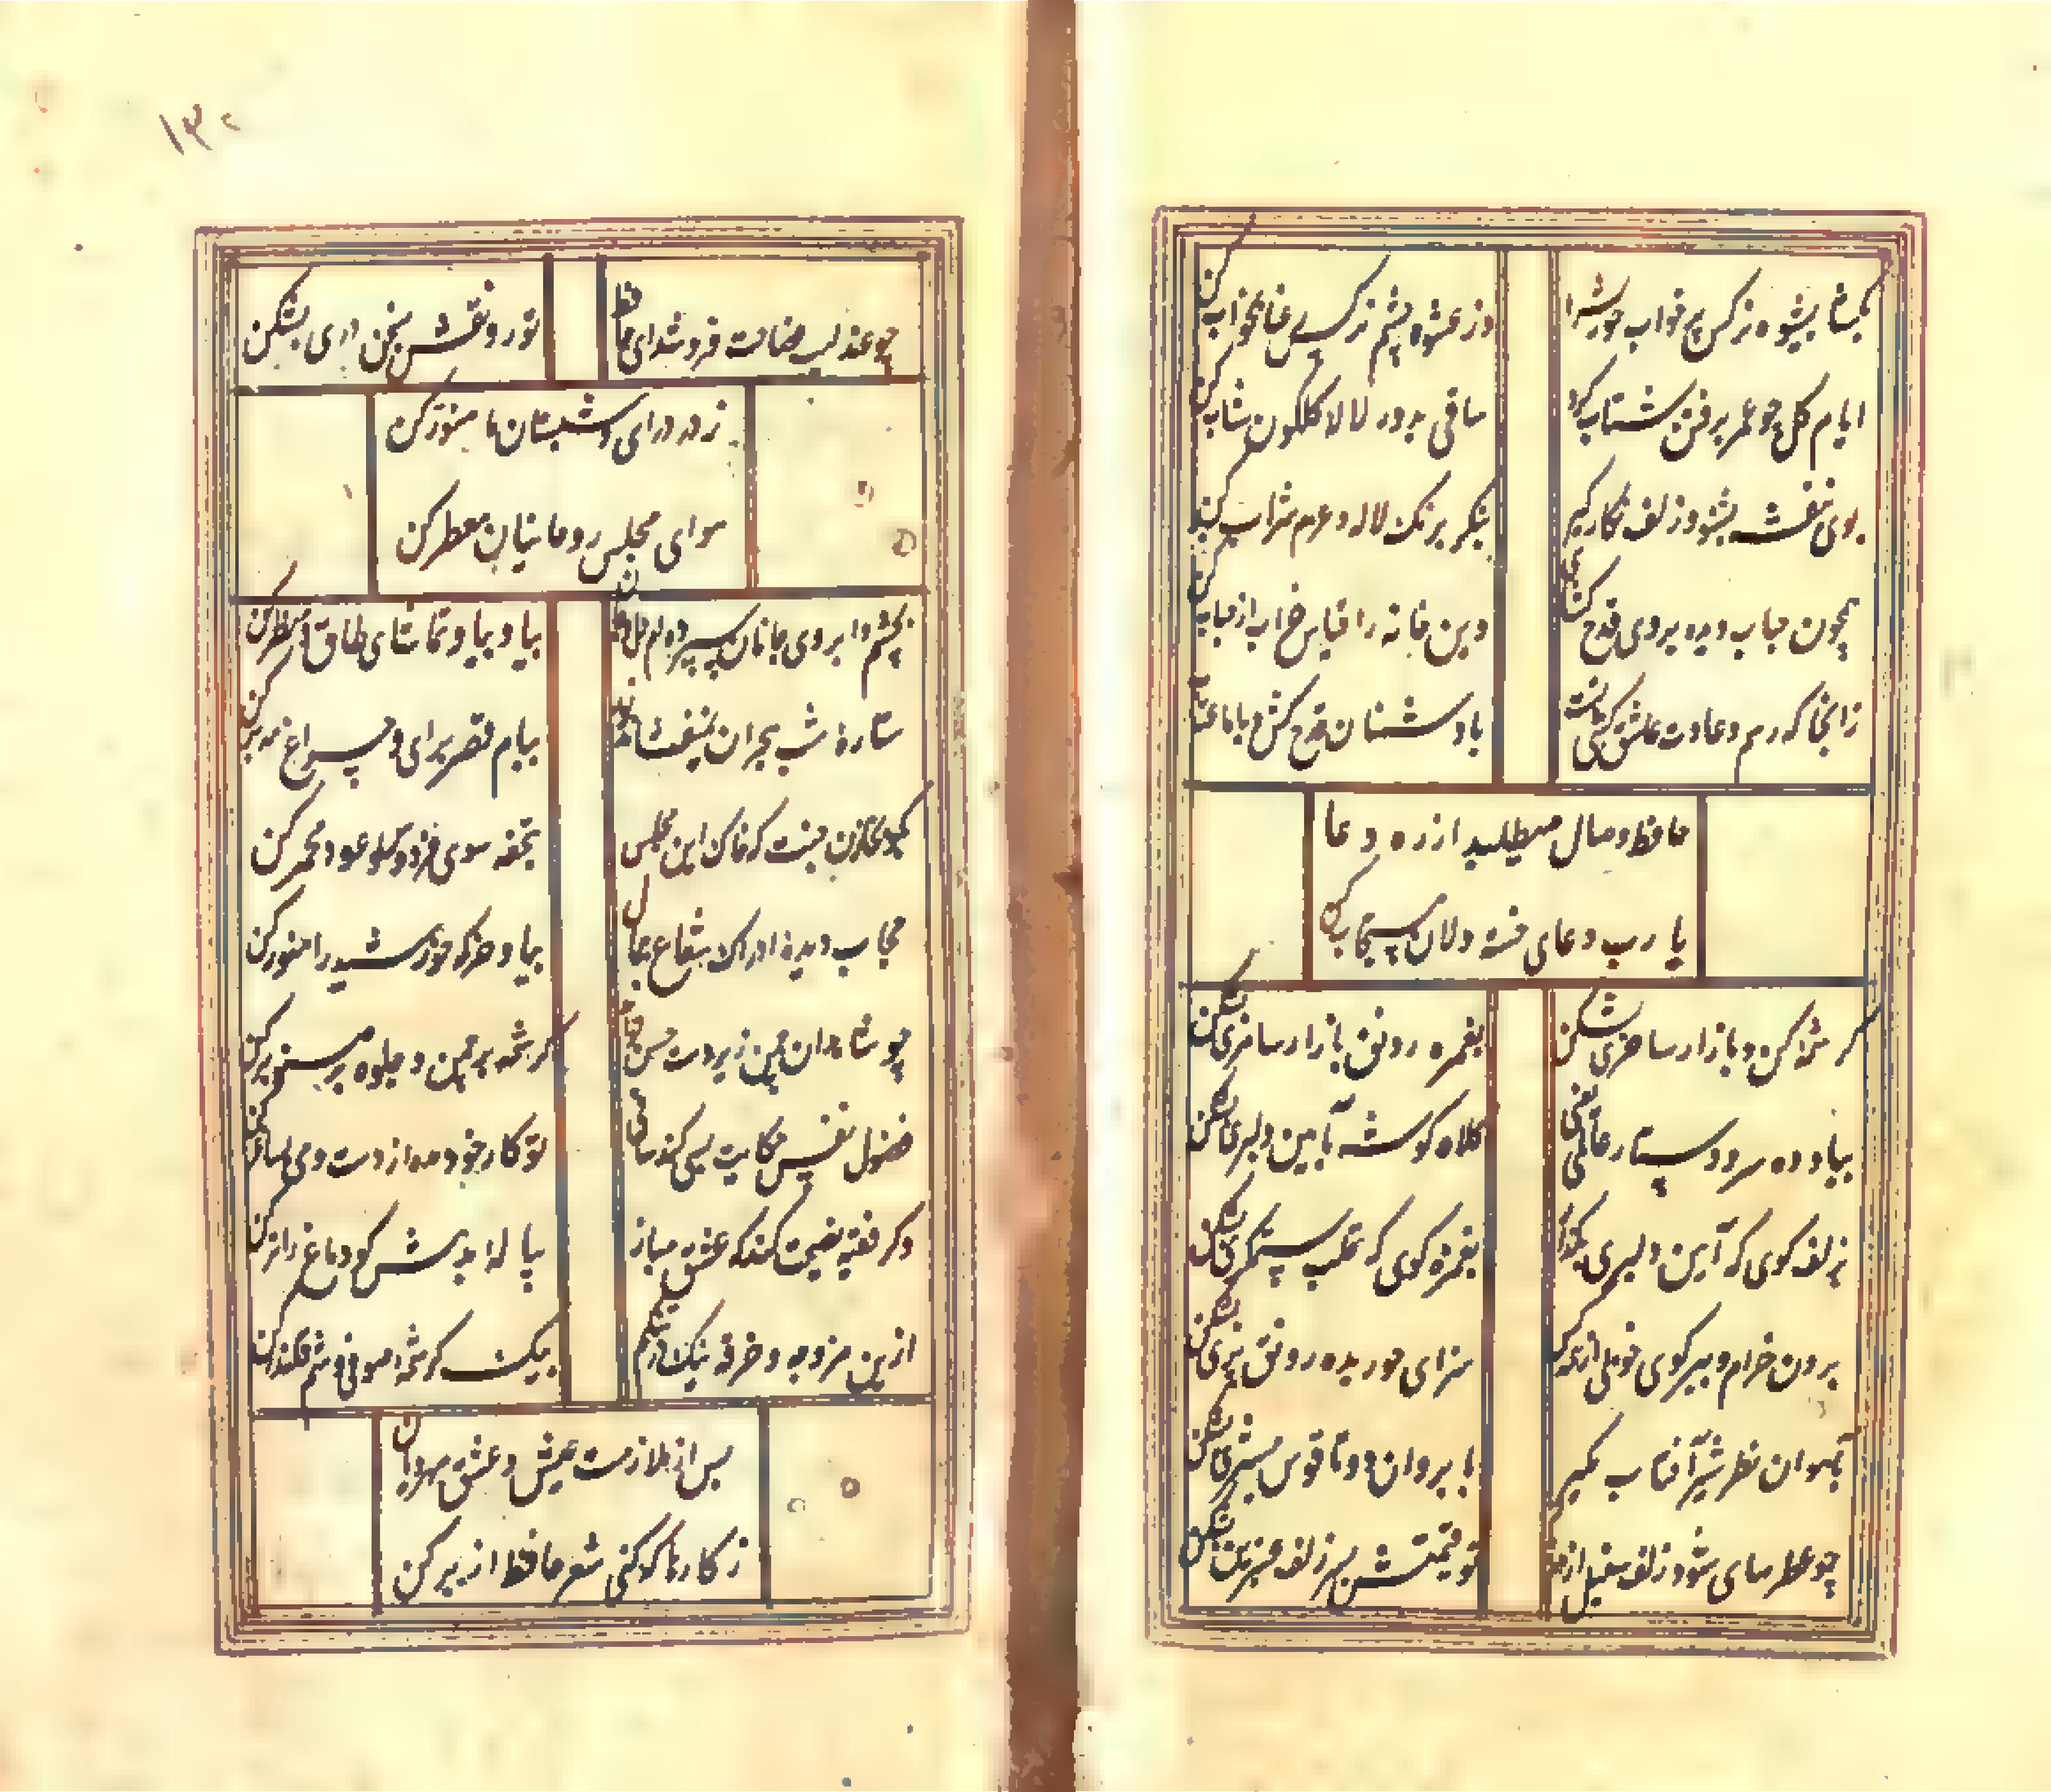 بکشا بشیوه نرکس پر خواب خویش را
وز عشوه چشم نرکس رعنا بخواب کن
ایام کل چو عمر برفتن شتاب کرد
ساقی بدور لاله کلکون شتاب کن
بوی بنفشه بشنو و زلف نکار کیر
بنکر برنک لاله و عزم شراب کن
همچون حباب دیده بروی قدح کشای
وین خانه را قیاس خراب از حباب کن
زانجا که رسم و عادت عاشق کشی تست
با دشمنان قدح کش و با ما عتاب کن
حافظ وصال میطلبد از ره دعا
یا رب دعای خسته دلان مستجاب کن
کرشمه کن و بازار ساحری بشکن
بغمزه رونق بازار سامری بشکن
بیاد ده سر و دستار عالمی یعنی
کلاه کوشه بآیین دلبری بشکن
بزلف کوی که آیین دلبری بکذار
بغمزه کوی که قلب ستمکری بشکن
برون خرام و ببر کوی خوبی از همه کس
سزای حور بده رونق پری بشکن
بآهوان نظر شیر آفتاب بکیر
بابروان دوتا قوس مشتری بشکن
چو عطر سای شود زلف سنبل از
تو قیمتش بسر زلف عنبرین بشکن
۱۳۰
چو عندلیب فصاحت فروشد ای حافظ
تو رونقش بسخن دری بشکن
ز در درای و شبستان ما منور کن
هوای مجلس روحانیان معطر کن
بچشم و ابروی جانان سپرده ام دل و جان
بیا و بیا و تماشای طاق و منظر کن
ستاره شب هجران نمیفشاند نور
ببام قصر برای و چراغ مه بر کن
بکو بخازن جنت که خاک این مجلس
بتحفه سوی فردوس و عود مجمر کن
حجاب دیده ادراک شد شعاع جمال
بیا و خرکه خورشید را منور کن
چو شاهدان چمن زیر دست حسن تواند
کرشمه بر سمن و جلوه بر صنوبر کن
فضول نفس حکایت بسی کند ساقی
تو کار خود مده از دست و می بساغر کن
وکر فقیه نصیحت کند که عشق مباز
پیاله بدهش کو دماغ را تر کن
ازین مزوجه و خرقه نیک در تنکم
بیک کرشمه صوفی وشم قلندر کن
پس از ملازمت عیش و عشق مهرویان
ز کارها که کنی شعر حافظ از بر کن